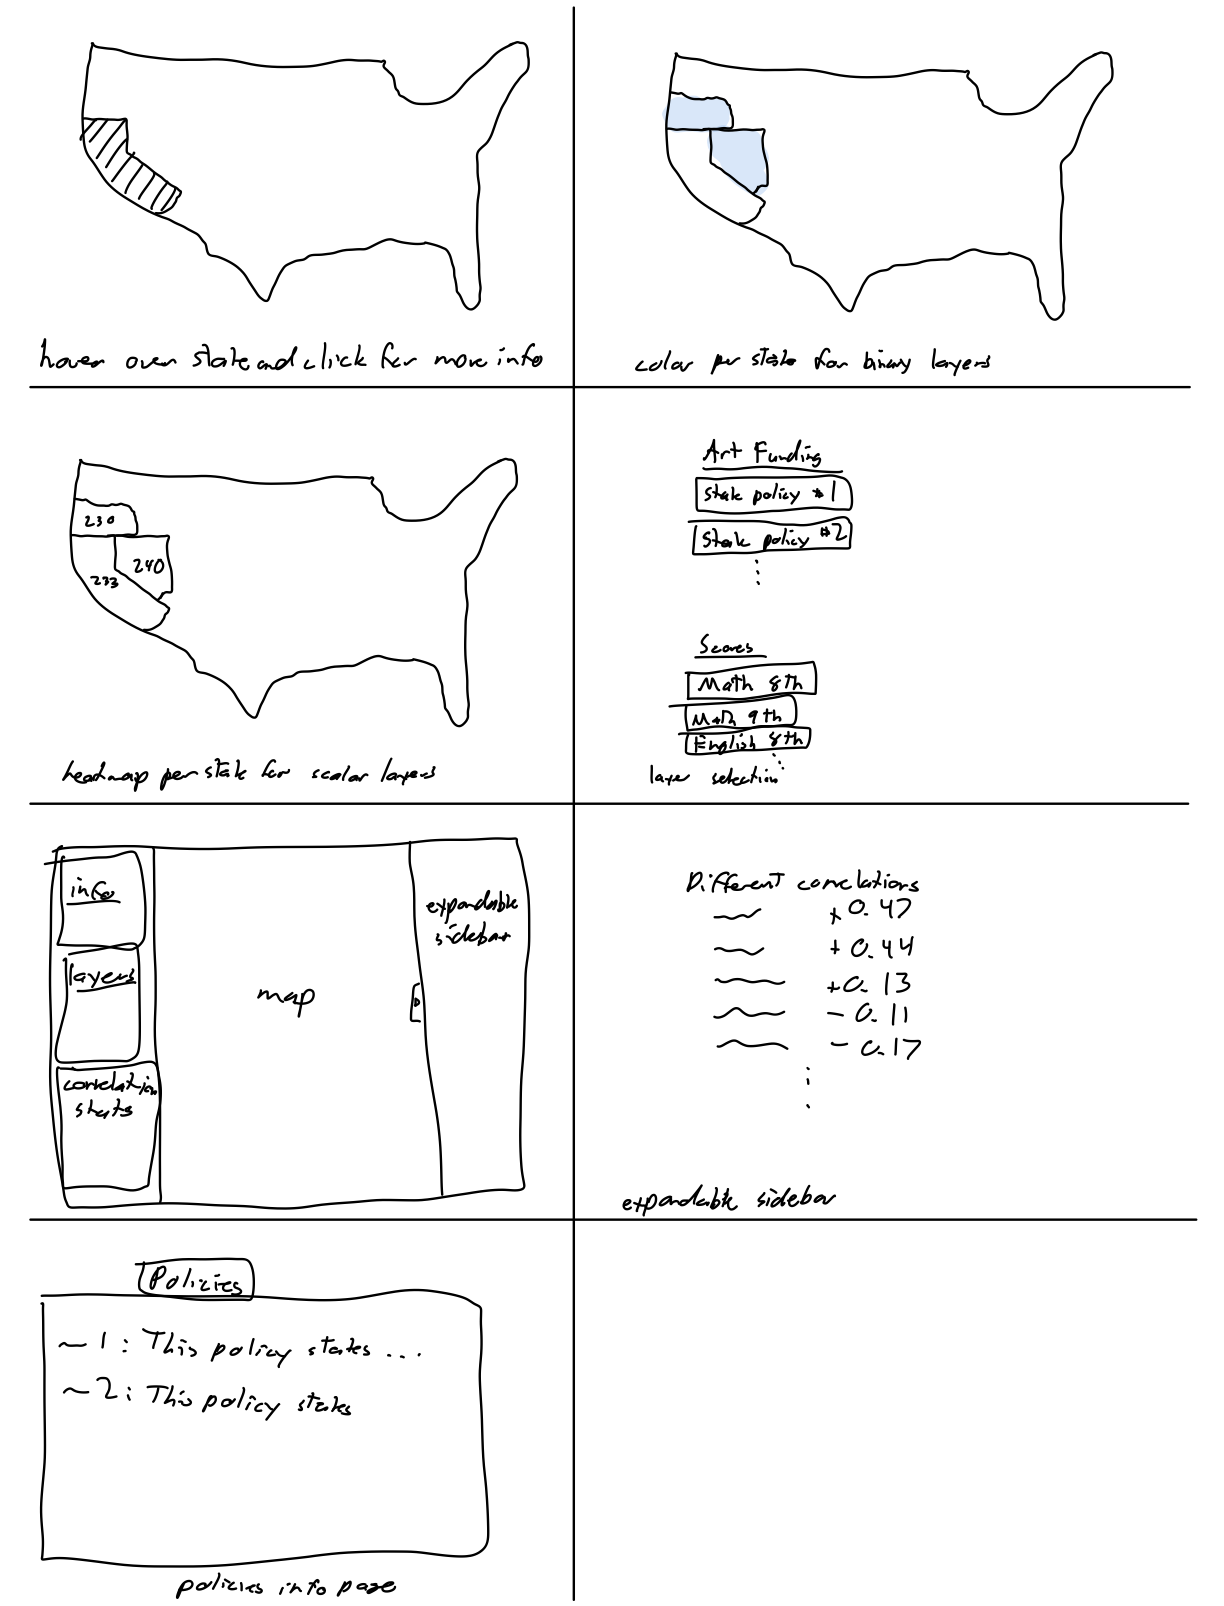 hover over state and click for more info
color per state for binary layers
230
240
233
heatmap per state for scalar layers
Art Funding
State policy #1
State policy #2
Scores
Math 8th
Math 9th
English 8th
layer selection
info
layers
correlation
stats
map
expandable
sidebar
Different correlations
+0.47
+0.44
+0.13
-0.11
-0.17
expandable sidebar
Policies
~1: This policy states ...
~2: This policy states
policies info page